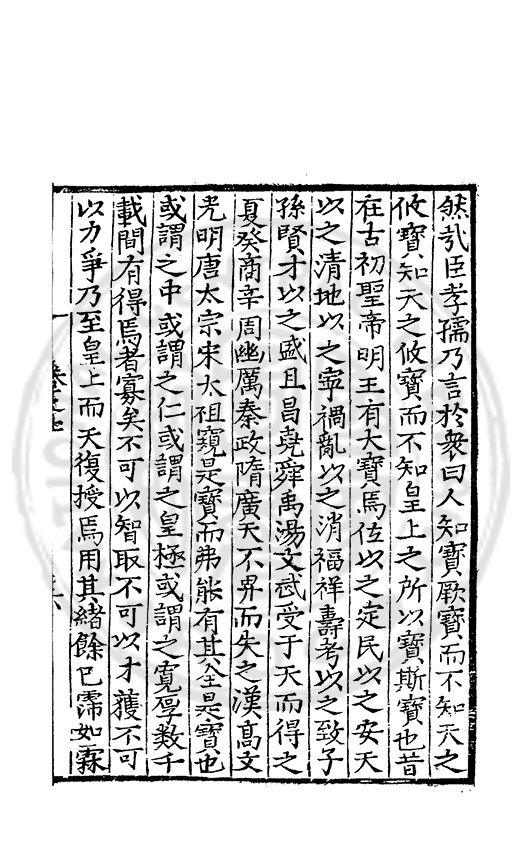 然哉臣孝孺乃言於衆曰人知寶厥寶而不知天之
攸寶知天之攸寶而不知皇上之所以寶斯寶也昔
在古初聖帝明王有大寶焉位以之定民以之安天
以之清地以之寧禍亂以之消福祥壽考以之致子
孫賢才以之盛且昌堯舜禹湯文武受于天而得之
夏癸商辛周幽厲秦政隋廣天不畀而失之漢高文
光明唐太宗宋太祖窺是寶而弗能有其全是寶也
或謂之中或謂之仁或謂之皇極或謂之寬厚数千
載間有得焉者寡矣不可以智取不可以才獲不可
以力爭乃至皇上而天復授焉用其緒餘已霈如霖